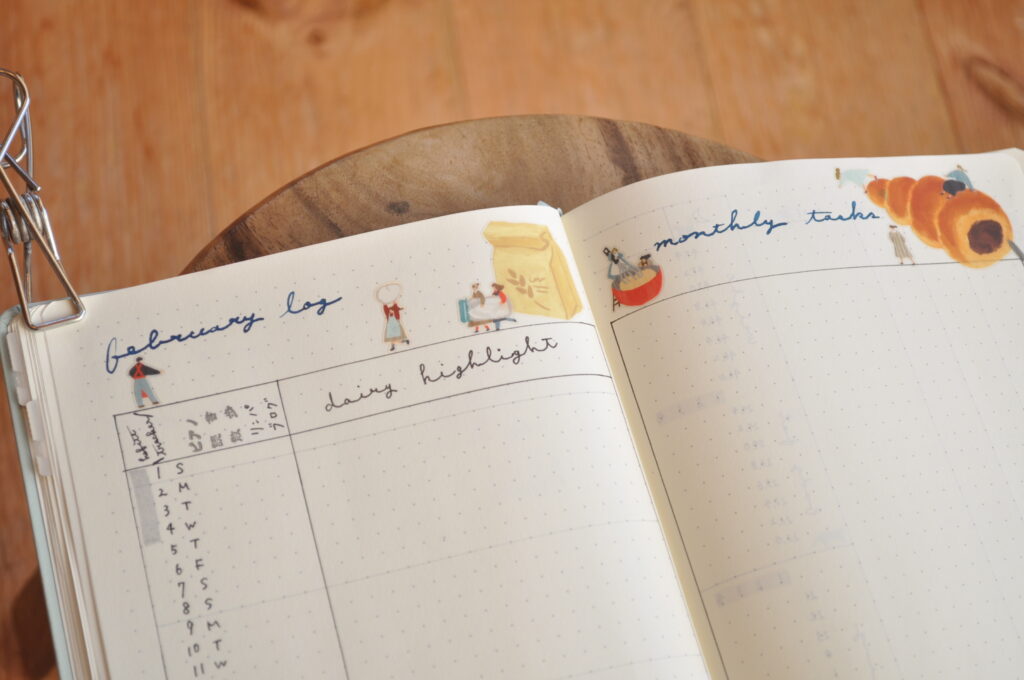 february log
monthly tasks
dairy highlight
habit tracker
ピアノ
食
リンパ
ブログ
1 S
2 M
3 T
4 W
5 T
6 F
7 S
8 S
9 M
10 T
11 W